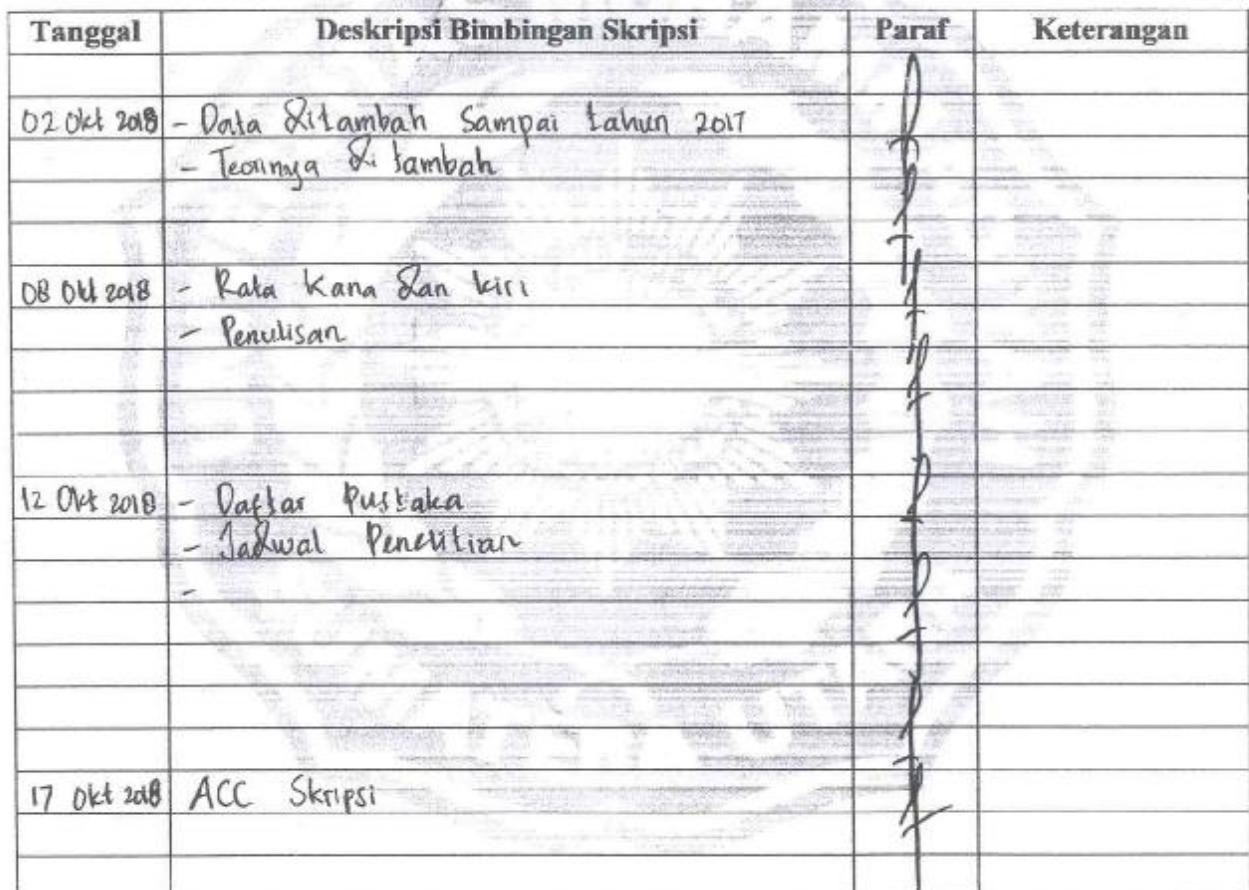 Tanggal Deskripsi Bimbingan Skripsi Paraf Keterangan
02 Okt 2018 - Data ditambah Sampai tahun 2017
- Teorinya di tambah
08 Okt 2018 - Rata Kana dan kiri
- Penulisan
12 Okt 2018 - Daftar Pustaka
- Jadwal Penelitian
-
17 Okt 2018 ACC Skripsi